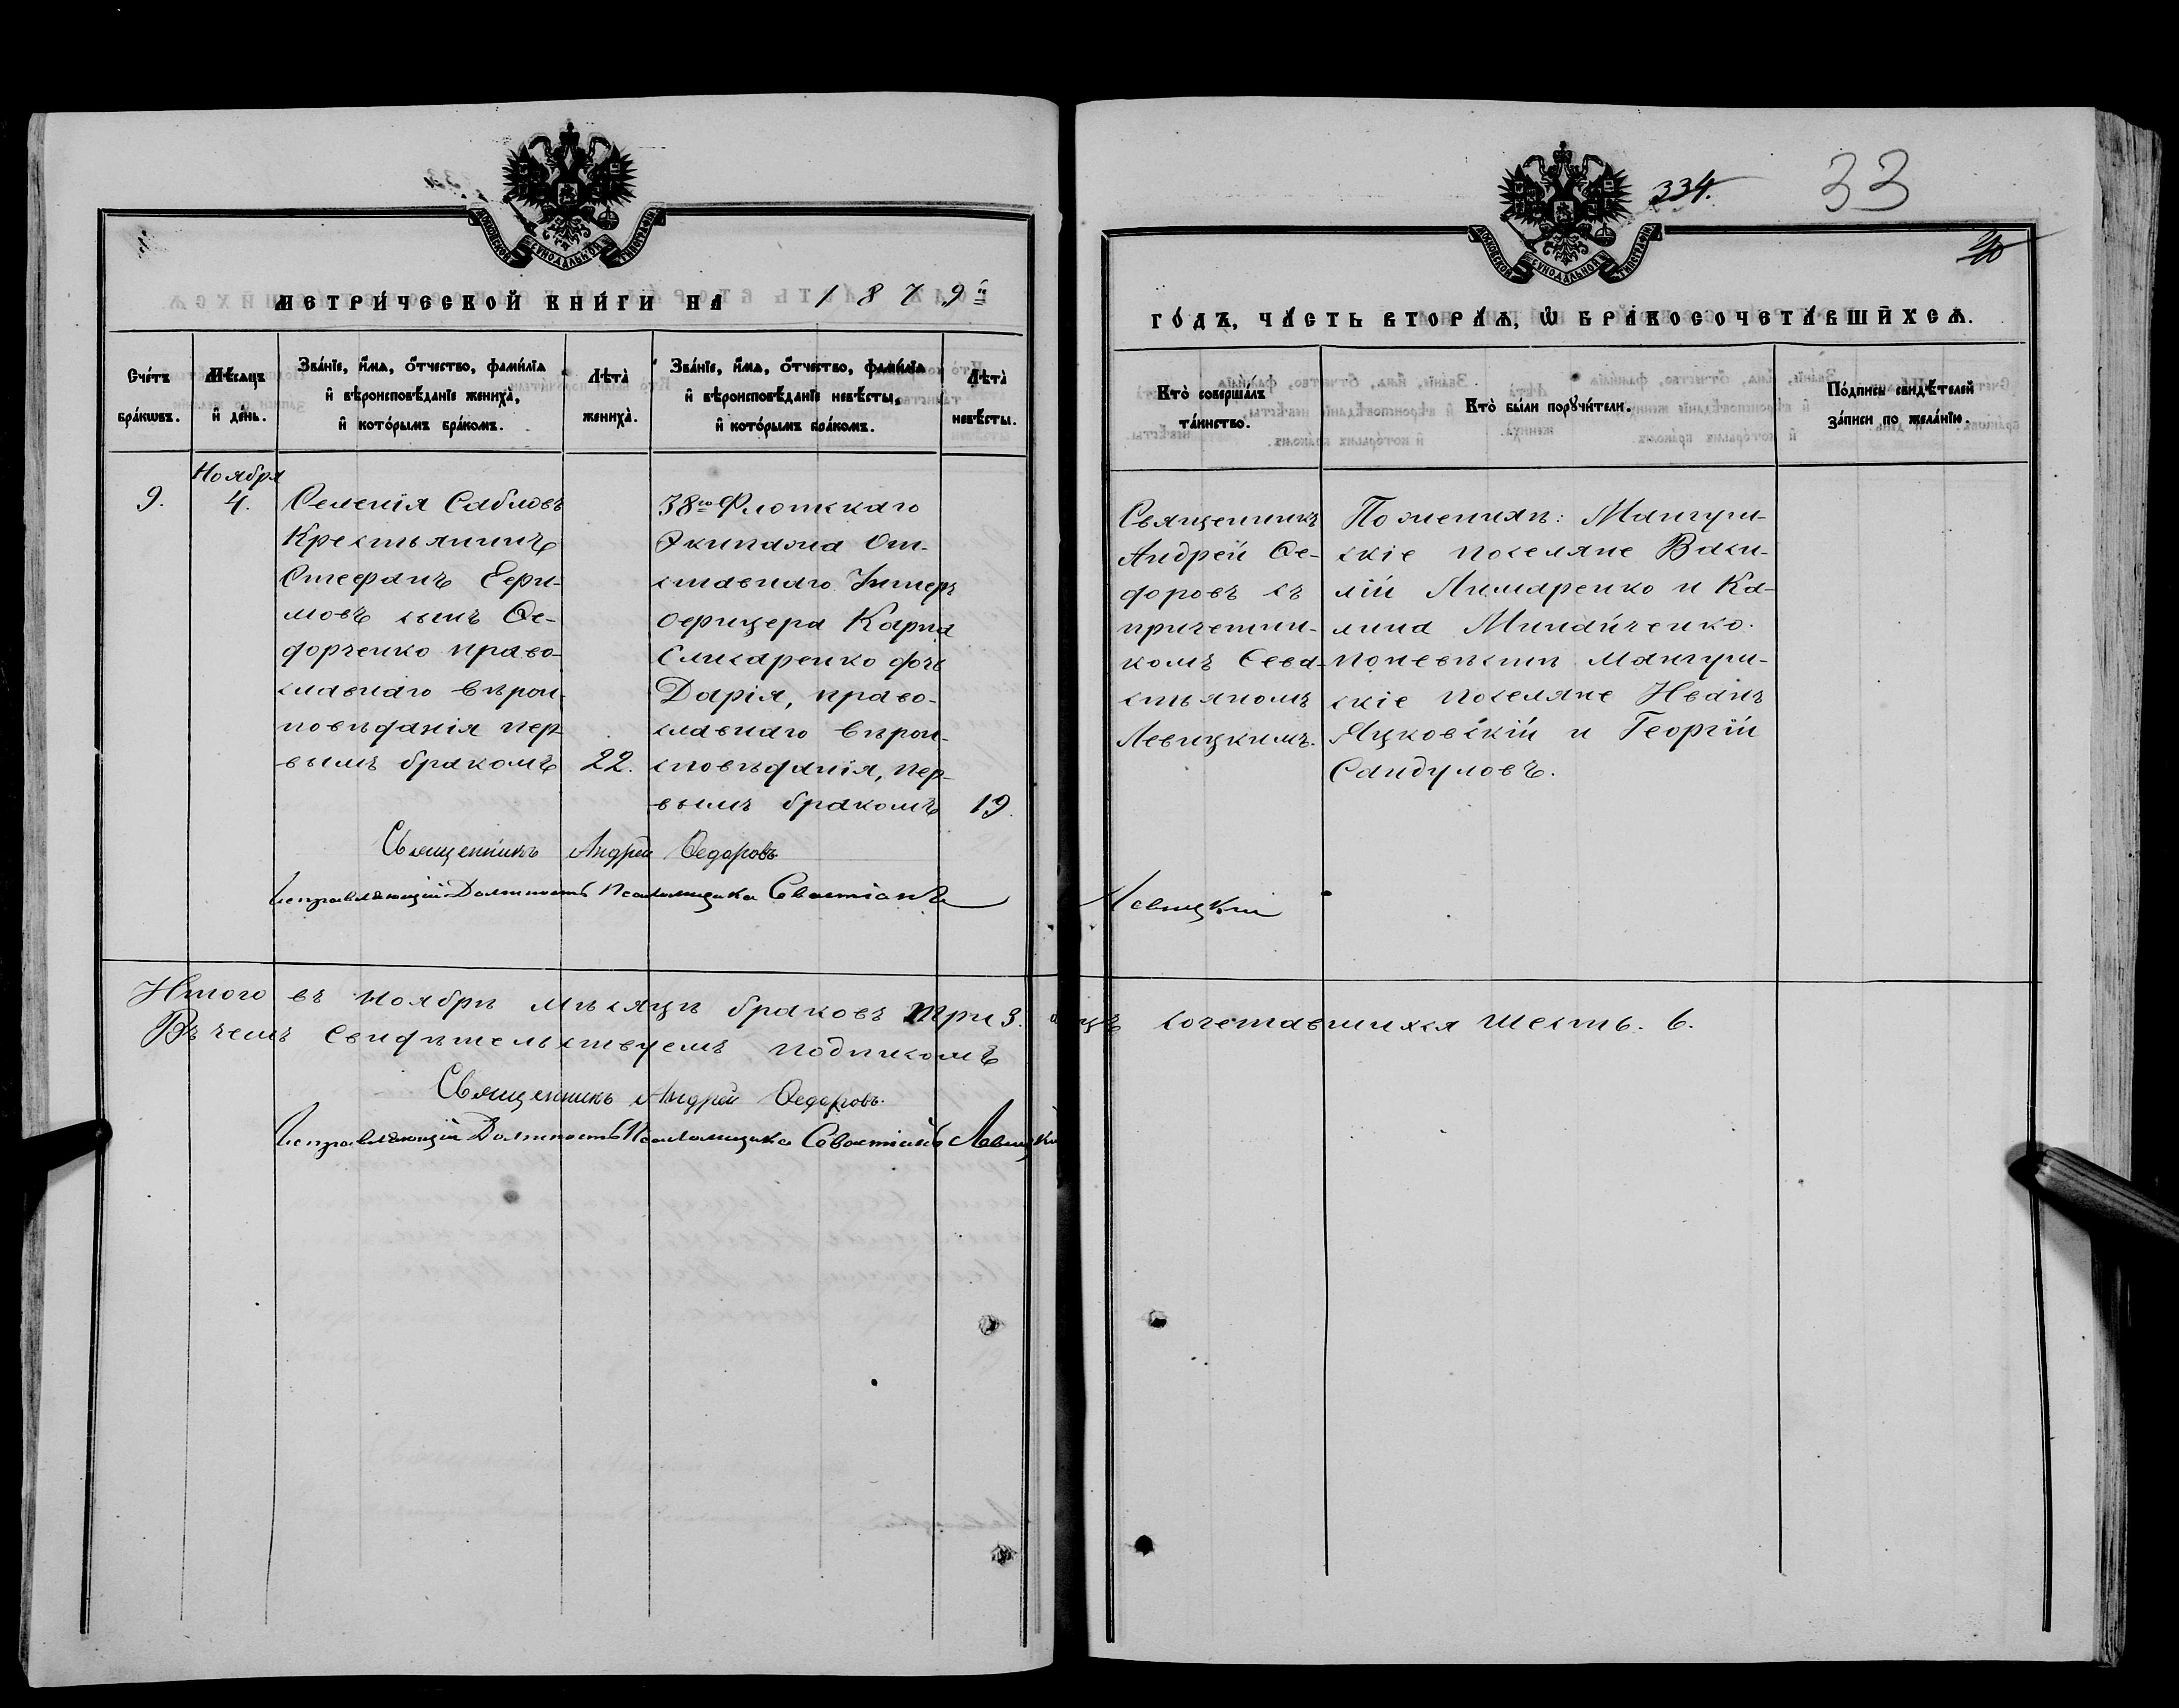 334.
33
МОСКОВСКОЙ СѴНОДАЛЬНОЙ ТИПОГРАФІИ
МОСКОВСКОЙ СѴНОДАЛЬНОЙ ТИПОГРАФІИ
МЕТРИ́ЧЕСКОЙ КНИ́ГИ НА 1879й
ГО́ДЪ, ЧА́СТЬ ВТОРА́Ѧ, Ѡ БРАКОСОЧЕТА́ВШИХСѦ.
Сче́тъ
бра́кѡвъ.
Мѣ́сѧцъ
и҆ де́нь.
Зва́нїе, и҆́мѧ, о҆́тчество, фами́лїѧ
и҆ вѣроисповѣ́данїе жениха̀,
и҆ кото́рымъ бра́комъ.
Лѣта̀
жениха̀.
Зва́нїе, и҆́мѧ, о҆́тчество, фами́лїѧ
и҆ вѣроисповѣ́данїе невѣ́сты,
и҆ кото́рымъ бра́комъ.
Лѣта̀
невѣ́сты.
Кто̀ соверша́лъ
та́инство.
Кто̀ бы́ли порꙋчи́тели.
По́дписи свидѣ́телей
за́писи по жела́нїю.
Ноября
9.
4.
Селенія Сабловъ
Крестьянинъ
Стефанъ Ефи-
мовъ сынъ Ѳе-
дорченко право-
славнаго вѣрои-
повѣданія пер-
вымъ бракомъ
22.
38го Флотскаго
Экипажа От-
ставнаго Унтеръ
Офицера Карпа
Слюсаренко дочь
Дарія, право-
славнаго вѣрои-
сповѣданія, пер-
вымъ бракомъ
19.
Священникъ
Андрей Ѳе-
доровъ съ
причетни-
комъ Сева-
стьяномъ
Левицкимъ.
По женихѣ: Мангуш-
скіе поселяне Васи-
лій Лимаренко и Ка-
лина
по невѣстѣ Мангуш-
скіе поселяне Иванъ
Яцковскій и Георгій
Сандуловъ.
Священникъ Андрей Ѳедоровъ
Исправляющій Должность Псаломщика Севастіанъ Левицкій
Итого въ ноябрѣ мѣсяцѣ браковъ три 3. лицъ сочетавшихся шесть. 6.
Въ чемъ свидѣтельствуемъ подписомъ
Священникъ Андрей Ѳедоровъ.
Исправляющій Должность Псаломщика Севастіанъ Левицкій